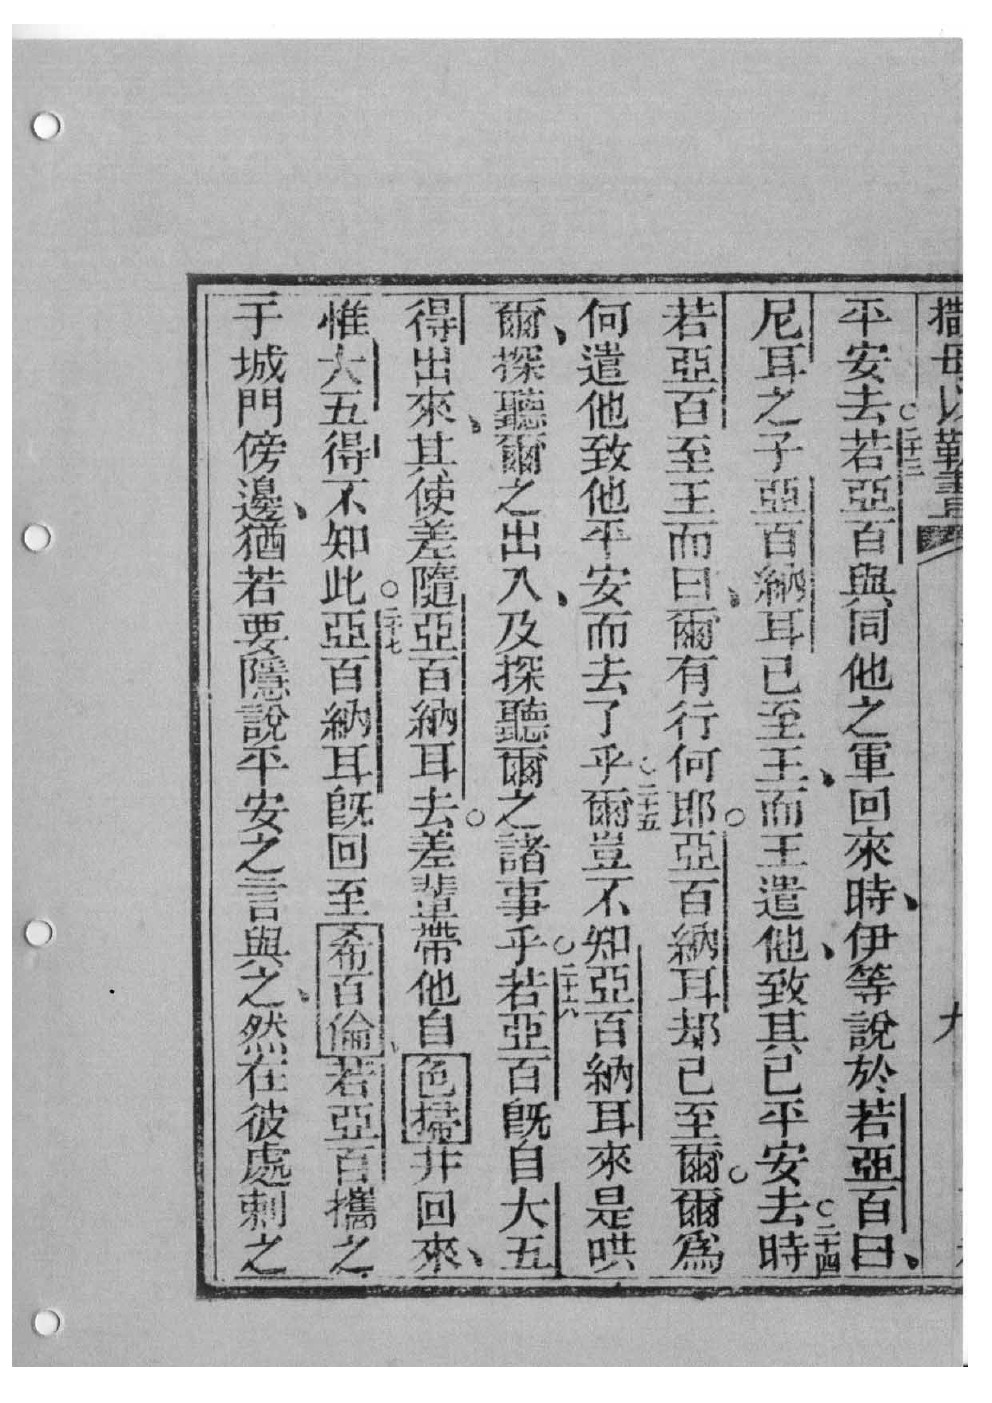 撒母以勒書
平安去○二十三若亞百與同他之軍回來時、伊等說於若亞百曰、
尼耳之子亞百納耳已至王、而王遣他、致其已平安去○二十四時
若亞百至王而曰、爾有行何耶○亞百納耳却已至爾○爾爲
何遣他致他平安而去了乎○二十五爾豈不知亞百納耳來是哄
爾、探聽爾之出入、及探聽爾之諸事乎○二十六若亞百旣自大五
得出來、其使差隨亞百納耳去○差輩帶他自色掃井回來、
惟大五得不知此○二十七亞百納耳旣回至希百倫、若亞百攜之
于城門傍邊、猶若要隱說平安之言與之、然在彼處刺之